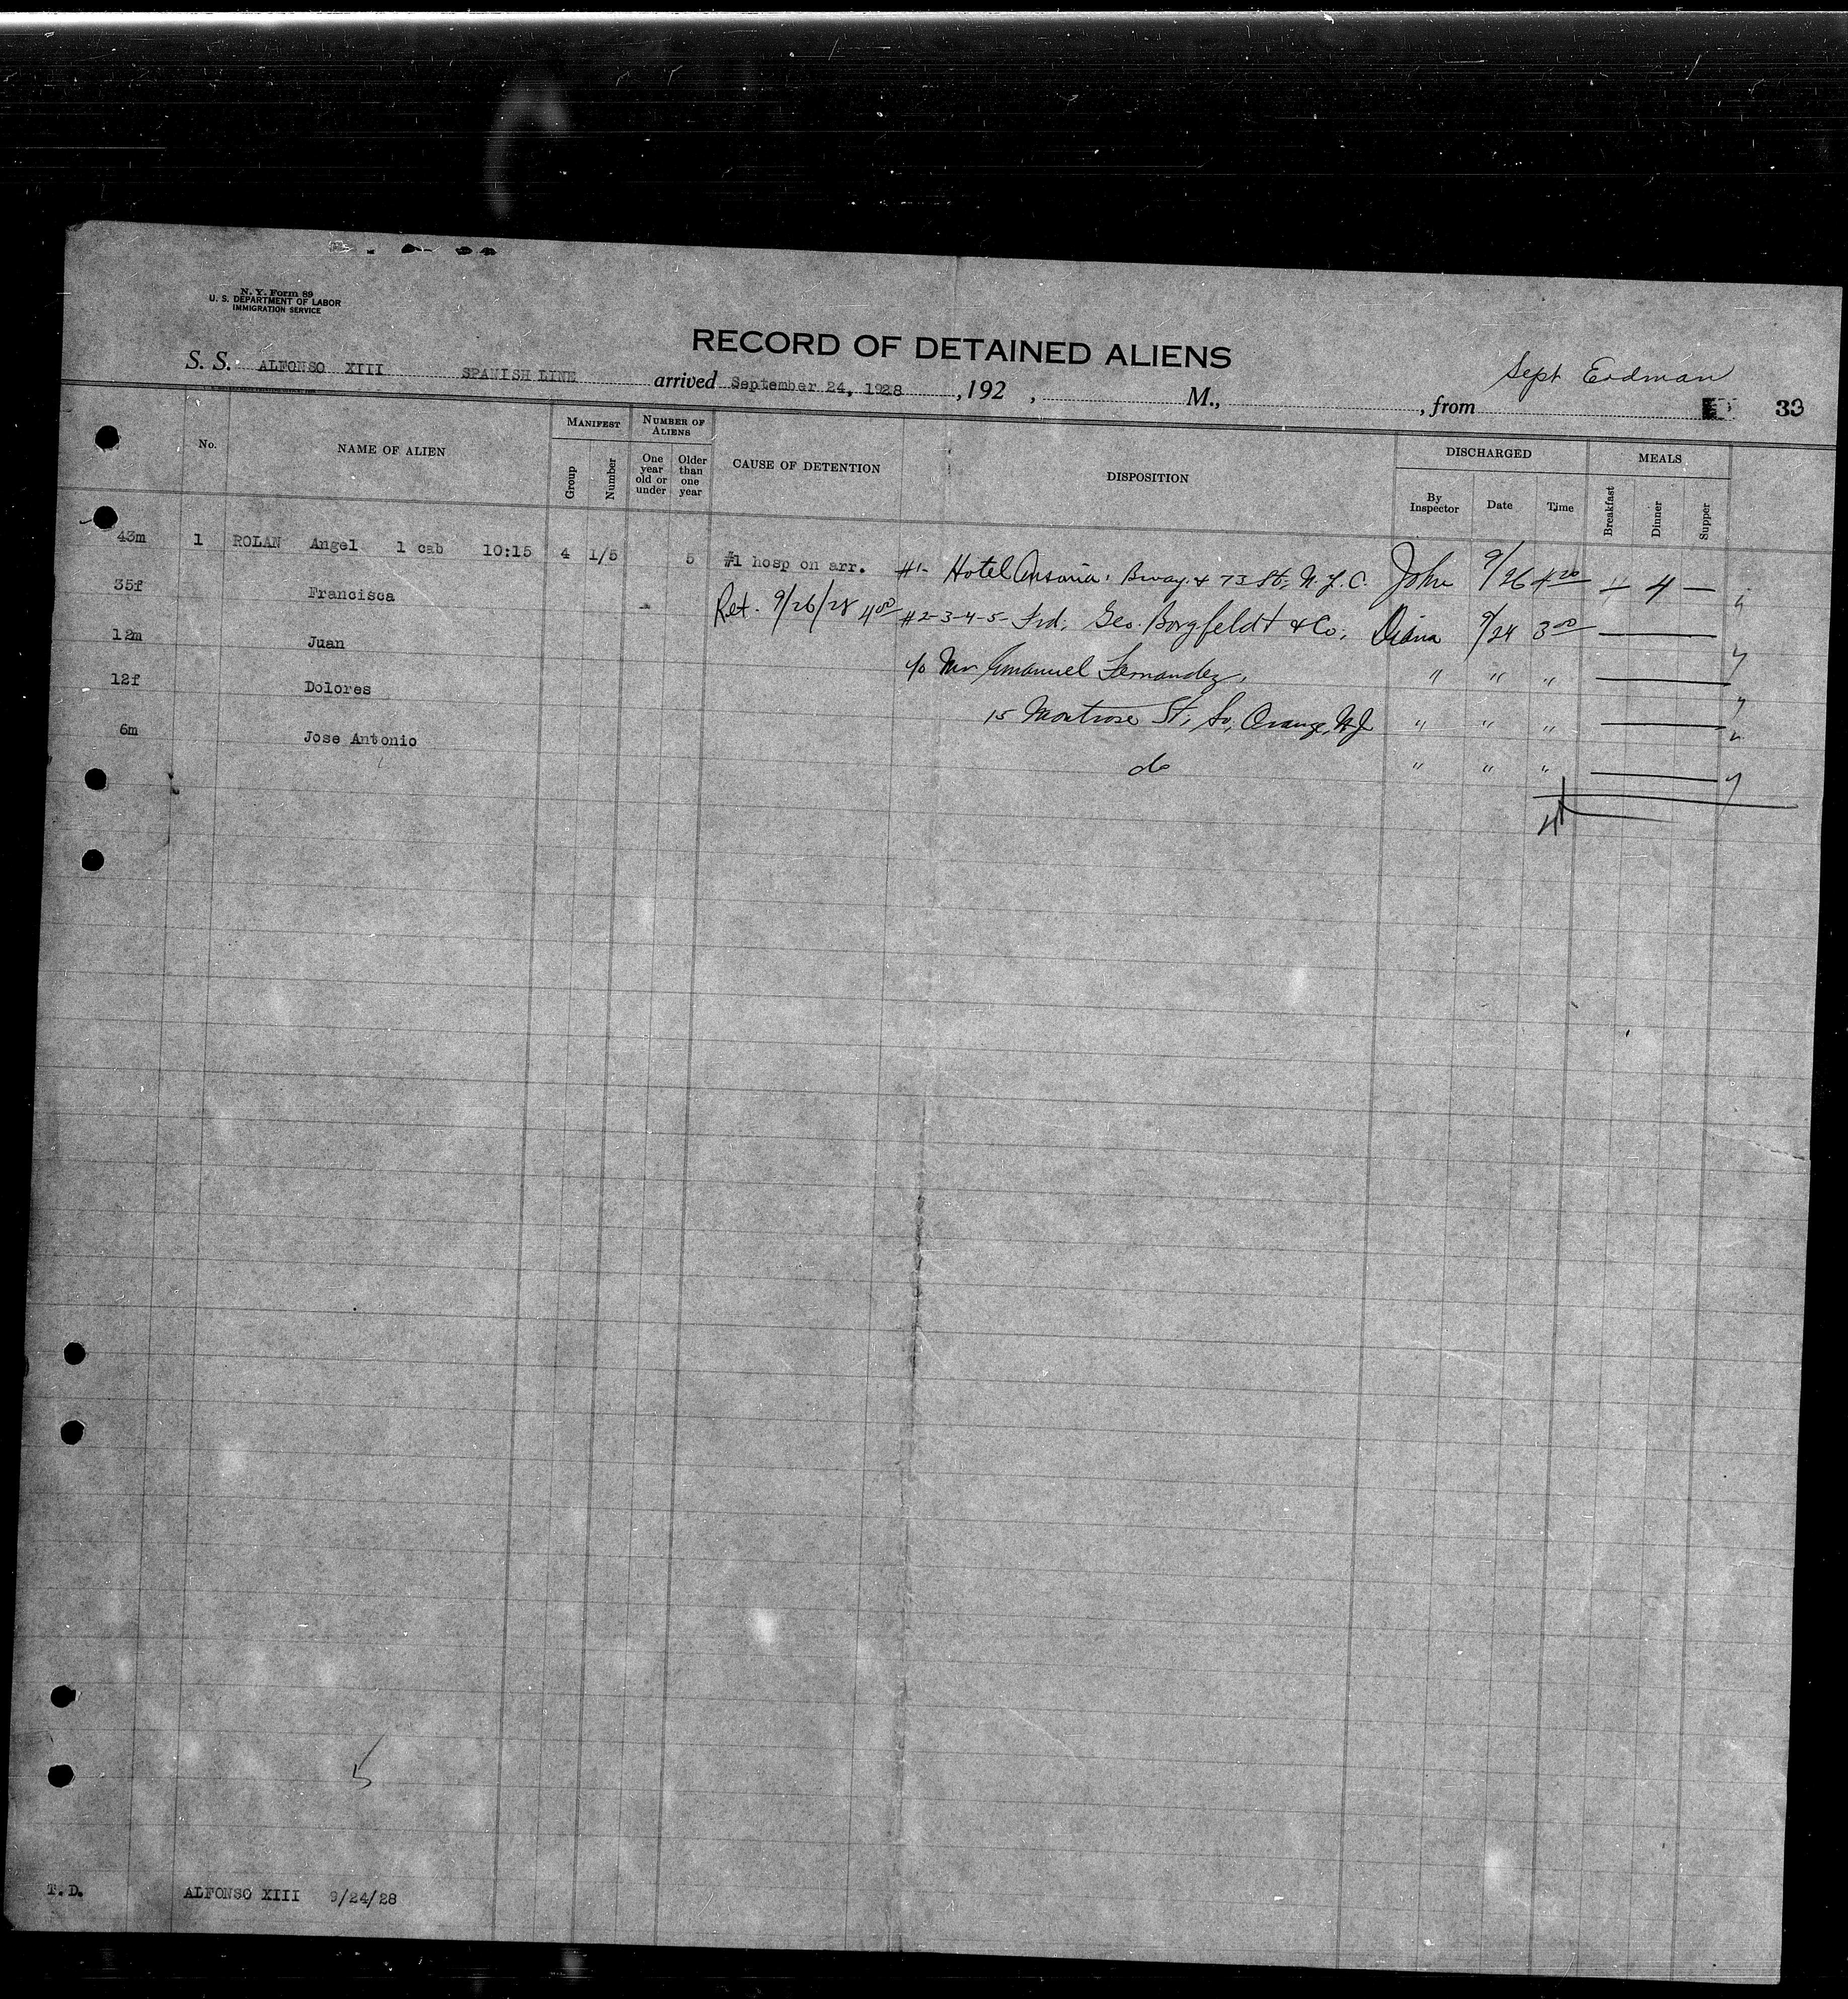 N. Y. Form 89
U. S. DEPARTMENT OF LABOR
IMMIGRATION SERVICE
RECORD OF DETAINED ALIENS
S. S. ALFONSO XIII SPANISH LINE arrived September 24, 1928 , 192 , M., , from 33
Sept Erdman
No. NAME OF ALIEN MANIFEST NUMBER OF ALIENS CAUSE OF DETENTION DISPOSITION DISCHARGED MEALS
Group Number One year old or under Older than one year By Inspector Date Time Breakfast Dinner Supper
43m 1 ROLAN Angel 1 cab 10:15 4 1/5 5 #1 hosp on arr. #1- Hotel Ansonia, Bway & 73 St, N.Y.C. John 9/26 4 20 — 4 —
35f Francisca Ret. 9/26/28 4 00 #2-3-4-5- Frd, Geo. Borgfeldt & Co, Diana 9/24 3 00
12m Juan c/o Mr Emanuel Fernandez, " " "
12f Dolores 15 Montrose St, So, Orange, N.J. " " "
6m Jose Antonio do " " "
5
T.D. ALFONSO XIII 9/24/28